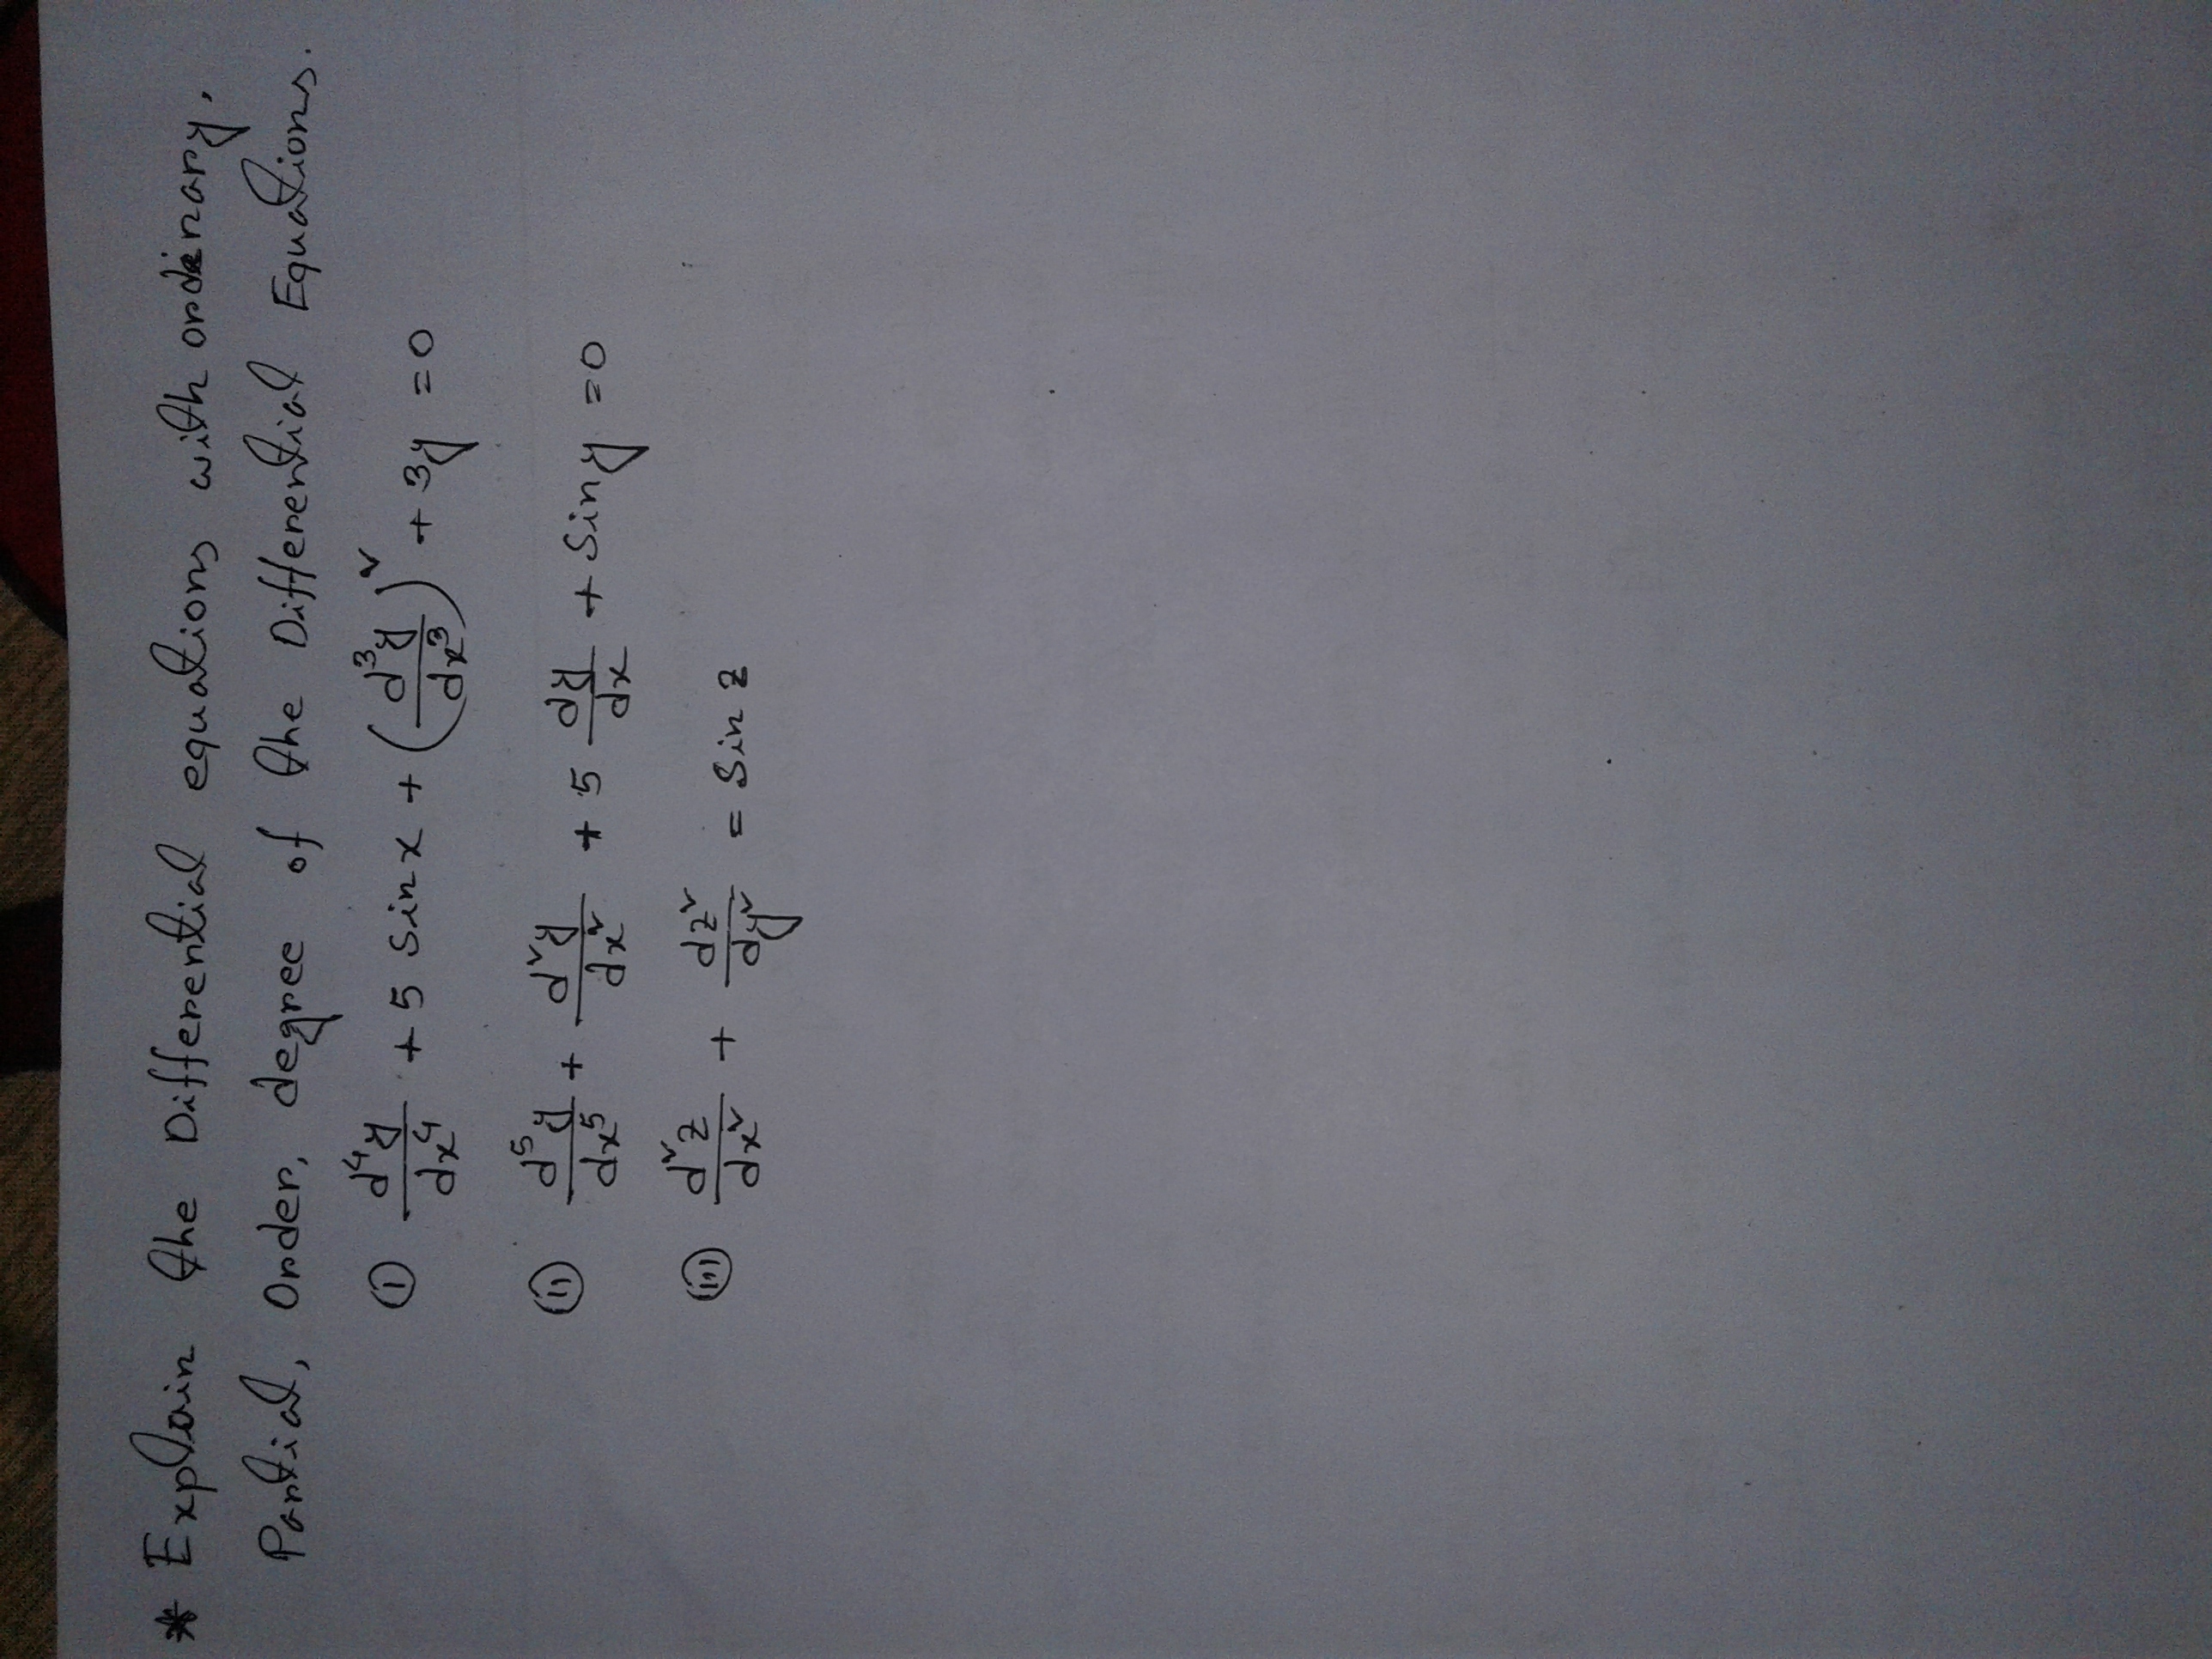 * Explain the Differential equations with ordinary,
Partial, Order, degree of the Differential Equations.
(i) d⁴y/dx⁴ + 5 Sin x + (d³y/dx³)² + 3y = 0
(ii) d⁵y/dx⁵ + d²y/dx² + 5 dy/dx + Sin y = 0
(iii) d²z/dx² + dz²/dy² = Sin z